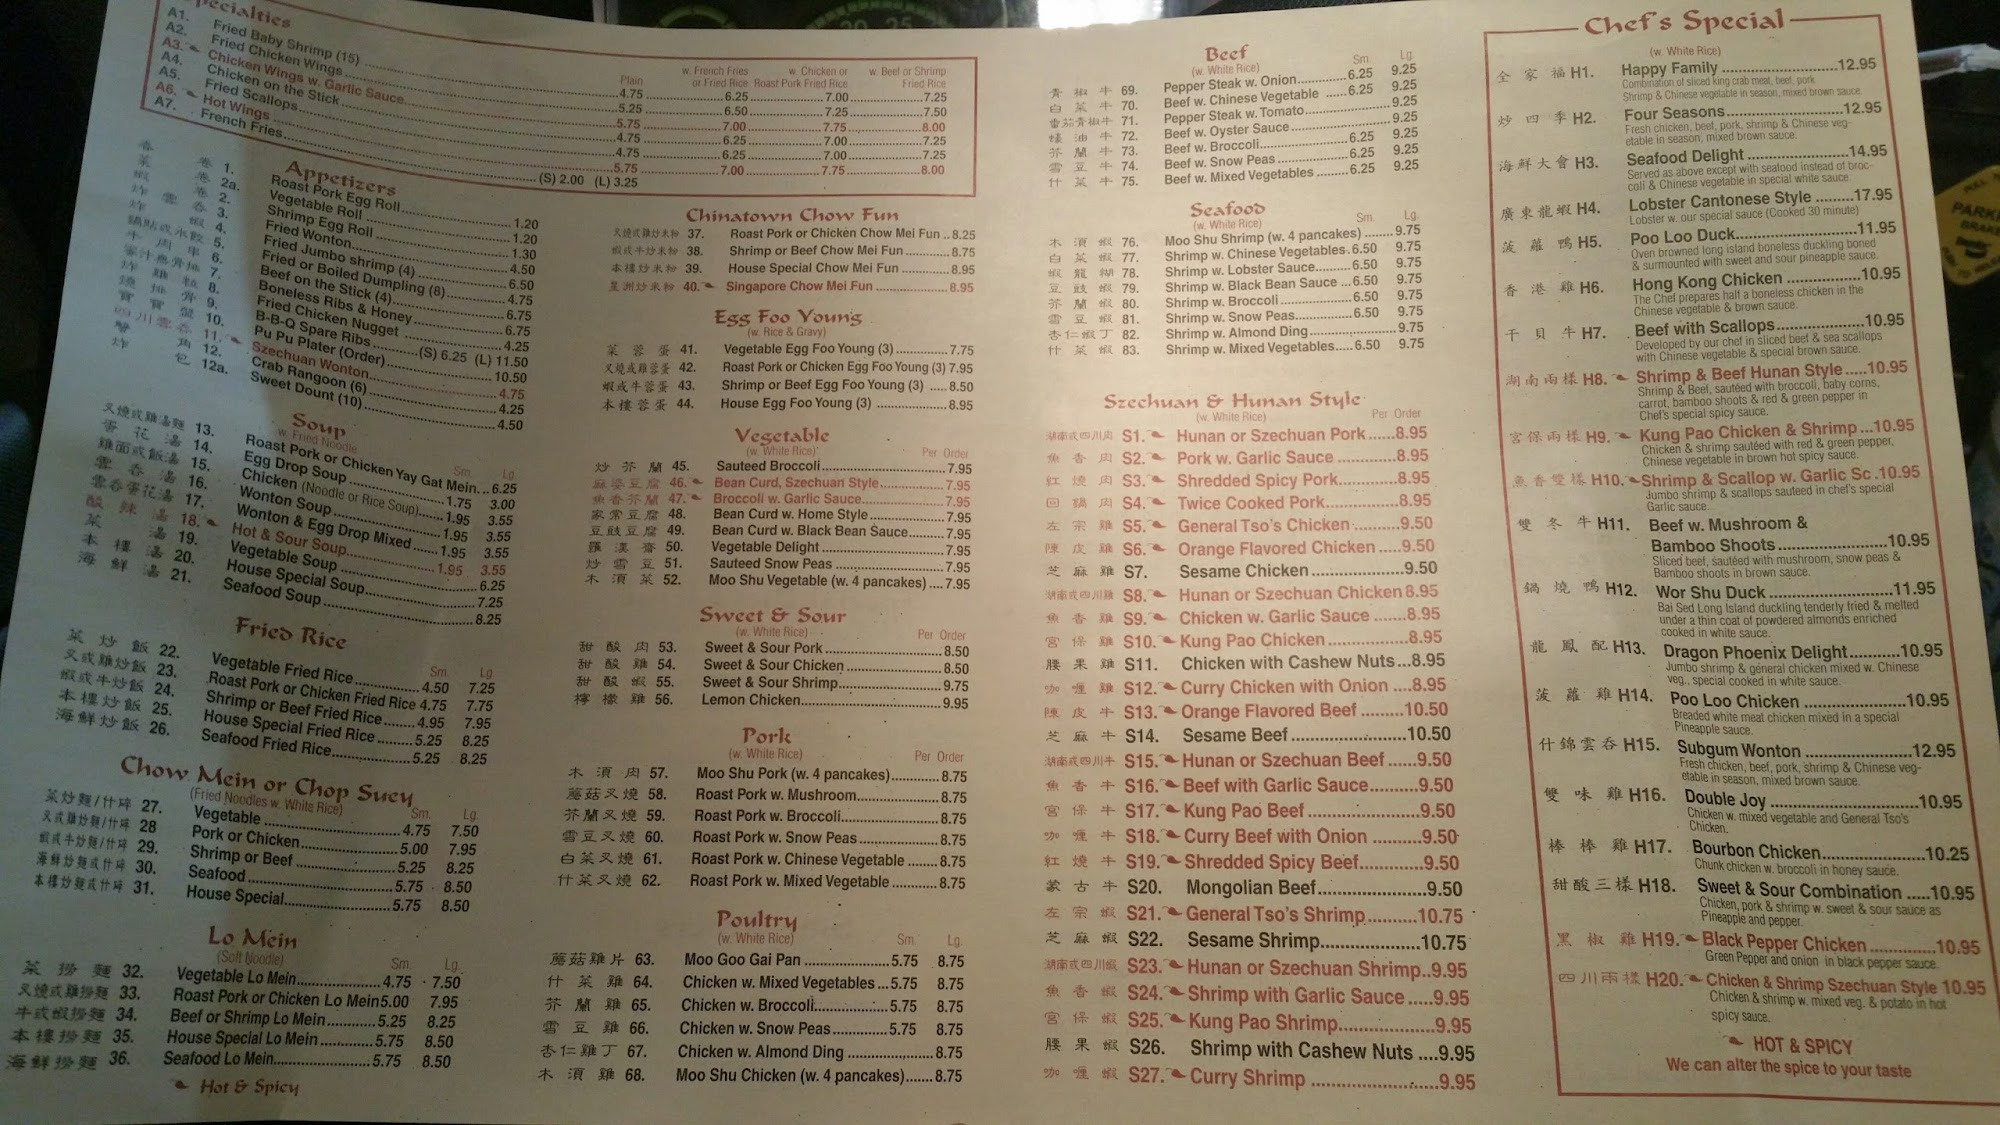 Specialties
Plain
w. French Fries or Fried Rice
w. Chicken or Roast Pork Fried Rice
w. Beef or Shrimp Fried Rice
A1. Fried Baby Shrimp (15) 4.75 6.25 7.00 7.25
A2. Fried Chicken Wings 5.25 6.50 7.25 7.50
A3. Chicken Wings w. Garlic Sauce 5.75 7.00 7.75 8.00
A4. Chicken on the Stick 4.75 6.25 7.00 7.25
A5. Fried Scallops 4.75 6.25 7.00 7.25
A6. Hot Wings 5.75 7.00 7.75 8.00
A7. French Fries (S) 2.00 (L) 3.25
Appetizers
春 卷 1. Roast Pork Egg Roll 1.20
菜 卷 2a. Vegetable Roll 1.20
蝦 卷 2. Shrimp Egg Roll 1.30
炸 雲 吞 3. Fried Wonton 4.50
炸 蝦 4. Fried Jumbo shrimp (4) 6.50
鍋貼或水餃 5. Fried or Boiled Dumpling (8) 4.75
牛 肉 串 6. Beef on the Stick (4) 6.75
蜜汁無骨排 7. Boneless Ribs & Honey 6.75
炸 雞 粒 8. Fried Chicken Nugget 4.25
燒 排 骨 9. B-B-Q Spare Ribs (S) 6.25 (L) 11.50
寶 寶 盤 10. Pu Pu Plater (Order) 10.50
四川雲吞 11. Szechuan Wonton 4.75
蟹 角 12. Crab Rangoon (6) 4.25
炸 包 12a. Sweet Dount (10) 4.50
Soup
w. Fried Noodle
Sm. Lg.
叉燒或雞湯麵 13. Roast Pork or Chicken Yay Gat Mein 6.25
蛋 花 湯 14. Egg Drop Soup 1.75 3.00
雞面或飯湯 15. Chicken (Noodle or Rice Soup) 1.95 3.55
雲 吞 湯 16. Wonton Soup 1.95 3.55
雲吞蛋花湯 17. Wonton & Egg Drop Mixed 1.95 3.55
酸 辣 湯 18. Hot & Sour Soup 1.95 3.55
菜 湯 19. Vegetable Soup 6.25
本 樓 湯 20. House Special Soup 7.25
海 鮮 湯 21. Seafood Soup 8.25
Fried Rice
Sm. Lg.
菜 炒 飯 22. Vegetable Fried Rice 4.50 7.25
叉或雞炒飯 23. Roast Pork or Chicken Fried Rice 4.75 7.75
蝦或牛炒飯 24. Shrimp or Beef Fried Rice 4.95 7.95
本樓炒飯 25. House Special Fried Rice 5.25 8.25
海鮮炒飯 26. Seafood Fried Rice 5.25 8.25
Chow Mein or Chop Suey
(Fried Noodles w. White Rice)
Sm. Lg.
菜炒麵/什碎 27. Vegetable 4.75 7.50
叉或雞炒麵/什碎 28 Pork or Chicken 5.00 7.95
蝦或牛炒麵/什碎 29. Shrimp or Beef 5.25 8.25
海鮮炒麵或什碎 30. Seafood 5.75 8.50
本樓炒麵或什碎 31. House Special 5.75 8.50
Lo Mein
(Soft Noodle)
Sm. Lg.
菜 撈 麵 32. Vegetable Lo Mein 4.75 7.50
叉燒或雞撈麵 33. Roast Pork or Chicken Lo Mein 5.00 7.95
牛或蝦撈麵 34. Beef or Shrimp Lo Mein 5.25 8.25
本樓撈麵 35. House Special Lo Mein 5.75 8.50
海鮮撈麵 36. Seafood Lo Mein 5.75 8.50
Hot & Spicy
Chinatown Chow Fun
叉燒或雞炒米粉 37. Roast Pork or Chicken Chow Mei Fun 8.25
蝦或牛炒米粉 38. Shrimp or Beef Chow Mei Fun 8.75
本樓炒米粉 39. House Special Chow Mei Fun 8.95
星洲炒米粉 40. Singapore Chow Mei Fun 8.95
Egg Foo Young
(w. Rice & Gravy)
菜 蓉 蛋 41. Vegetable Egg Foo Young (3) 7.75
叉燒或雞蓉蛋 42. Roast Pork or Chicken Egg Foo Young (3) 7.95
蝦或牛蓉蛋 43. Shrimp or Beef Egg Foo Young (3) 8.50
本樓蓉蛋 44. House Egg Foo Young (3) 8.95
Vegetable
(w. White Rice)
Per Order
炒 芥 蘭 45. Sauteed Broccoli 7.95
麻婆豆腐 46. Bean Curd, Szechuan Style 7.95
魚香芥蘭 47. Broccoli w. Garlic Sauce 7.95
家常豆腐 48. Bean Curd w. Home Style 7.95
豆豉豆腐 49. Bean Curd w. Black Bean Sauce 7.95
羅 漢 齋 50. Vegetable Delight 7.95
炒 雪 豆 51. Sauteed Snow Peas 7.95
木 須 菜 52. Moo Shu Vegetable (w. 4 pancakes) 7.95
Sweet & Sour
(w. White Rice)
Per Order
甜 酸 肉 53. Sweet & Sour Pork 8.50
甜 酸 雞 54. Sweet & Sour Chicken 8.50
甜 酸 蝦 55. Sweet & Sour Shrimp 9.75
檸 檬 雞 56. Lemon Chicken 9.95
Pork
(w. White Rice)
Per Order
木 須 肉 57. Moo Shu Pork (w. 4 pancakes) 8.75
蘑菇叉燒 58. Roast Pork w. Mushroom 8.75
芥蘭叉燒 59. Roast Pork w. Broccoli 8.75
雪豆叉燒 60. Roast Pork w. Snow Peas 8.75
白菜叉燒 61. Roast Pork w. Chinese Vegetable 8.75
什菜叉燒 62. Roast Pork w. Mixed Vegetable 8.75
Poultry
(w. White Rice)
Sm. Lg.
蘑菇雞片 63. Moo Goo Gai Pan 5.75 8.75
什 菜 雞 64. Chicken w. Mixed Vegetables 5.75 8.75
芥 蘭 雞 65. Chicken w. Broccoli 5.75 8.75
雪 豆 雞 66. Chicken w. Snow Peas 5.75 8.75
杏仁雞丁 67. Chicken w. Almond Ding 8.75
木 須 雞 68. Moo Shu Chicken (w. 4 pancakes) 8.75
Beef
(w. White Rice)
Sm. Lg.
青 椒 牛 69. Pepper Steak w. Onion 6.25 9.25
白 菜 牛 70. Beef w. Chinese Vegetable 6.25 9.25
番茄青椒牛 71. Pepper Steak w. Tomato 9.25
蠔 油 牛 72. Beef w. Oyster Sauce 9.25
芥 蘭 牛 73. Beef w. Broccoli 6.25 9.25
雪 豆 牛 74. Beef w. Snow Peas 6.25 9.25
什 菜 牛 75. Beef w. Mixed Vegetables 6.25 9.25
Seafood
(w. White Rice)
Sm. Lg.
木 須 蝦 76. Moo Shu Shrimp (w. 4 pancakes) 9.75
白 菜 蝦 77. Shrimp w. Chinese Vegetables 6.50 9.75
蝦 龍 糊 78. Shrimp w. Lobster Sauce 6.50 9.75
豆 豉 蝦 79. Shrimp w. Black Bean Sauce 6.50 9.75
芥 蘭 蝦 80. Shrimp w. Broccoli 6.50 9.75
雪 豆 蝦 81. Shrimp w. Snow Peas 6.50 9.75
杏仁蝦丁 82. Shrimp w. Almond Ding 9.75
什 菜 蝦 83. Shrimp w. Mixed Vegetables 6.50 9.75
Szechuan & Hunan Style
(w. White Rice)
Per Order
湖南或四川肉 S1. Hunan or Szechuan Pork 8.95
魚 香 肉 S2. Pork w. Garlic Sauce 8.95
紅 燒 肉 S3. Shredded Spicy Pork 8.95
回 鍋 肉 S4. Twice Cooked Pork 8.95
左 宗 雞 S5. General Tso's Chicken 9.50
陳 皮 雞 S6. Orange Flavored Chicken 9.50
芝 麻 雞 S7. Sesame Chicken 9.50
湖南或四川雞 S8. Hunan or Szechuan Chicken 8.95
魚 香 雞 S9. Chicken w. Garlic Sauce 8.95
宮 保 雞 S10. Kung Pao Chicken 8.95
腰 果 雞 S11. Chicken with Cashew Nuts 8.95
咖 喱 雞 S12. Curry Chicken with Onion 8.95
陳 皮 牛 S13. Orange Flavored Beef 10.50
芝 麻 牛 S14. Sesame Beef 10.50
湖南或四川牛 S15. Hunan or Szechuan Beef 9.50
魚 香 牛 S16. Beef with Garlic Sauce 9.50
宮 保 牛 S17. Kung Pao Beef 9.50
咖 喱 牛 S18. Curry Beef with Onion 9.50
紅 燒 牛 S19. Shredded Spicy Beef 9.50
蒙 古 牛 S20. Mongolian Beef 9.50
左 宗 蝦 S21. General Tso's Shrimp 10.75
芝 麻 蝦 S22. Sesame Shrimp 10.75
湖南或四川蝦 S23. Hunan or Szechuan Shrimp 9.95
魚 香 蝦 S24. Shrimp with Garlic Sauce 9.95
宮 保 蝦 S25. Kung Pao Shrimp 9.95
腰 果 蝦 S26. Shrimp with Cashew Nuts 9.95
咖 喱 蝦 S27. Curry Shrimp 9.95
Chef's Special
(w. White Rice)
全 家 福 H1. Happy Family 12.95
Combination of sliced king crab meat, beef, pork
Shrimp & Chinese vegetable in season, mixed brown sauce.
炒 四 季 H2. Four Seasons 12.95
Fresh chicken, beef, pork, shrimp & Chinese veg-
etable in season, mixed brown sauce.
海鮮大會 H3. Seafood Delight 14.95
Served as above except with seafood instead of broc-
coli & Chinese vegetable in special white sauce.
廣東龍蝦 H4. Lobster Cantonese Style 17.95
Lobster w. our special sauce (Cooked 30 minute)
菠 蘿 鴨 H5. Poo Loo Duck 11.95
Oven browned long island boneless duckling boned
& surmounted with sweet and sour pineapple sauce.
香 港 雞 H6. Hong Kong Chicken 10.95
The Chef prepares half a boneless chicken in the
Chinese vegetable & brown sauce.
干 貝 牛 H7. Beef with Scallops 10.95
Developed by our chef in sliced beef & sea scallops
with Chinese vegetable & special brown sauce.
湖南兩樣 H8. Shrimp & Beef Hunan Style 10.95
Shrimp & Beef, sautéed with broccoli, baby corns,
carrot, bamboo shoots & red & green pepper in
Chef's special spicy sauce.
宮保兩樣 H9. Kung Pao Chicken & Shrimp 10.95
Chicken & shrimp sautéed with red & green pepper,
Chinese vegetable in brown hot spicy sauce.
魚香雙樣 H10. Shrimp & Scallop w. Garlic Sc. 10.95
Jumbo shrimp & scallops sauteed in chef's special
Garlic sauce.
雙 冬 牛 H11. Beef w. Mushroom &
Bamboo Shoots 10.95
Sliced beef, sautéed with mushroom, snow peas &
Bamboo shoots in brown sauce.
鍋 燒 鴨 H12. Wor Shu Duck 11.95
Bai Sed Long Island duckling tenderly fried & melted
under a thin coat of powdered almonds enriched
cooked in white sauce.
龍 鳳 配 H13. Dragon Phoenix Delight 10.95
Jumbo shrimp & general chicken mixed w. Chinese
veg., special cooked in white sauce.
菠 蘿 雞 H14. Poo Loo Chicken 10.95
Breaded white meat chicken mixed in a special
Pineapple sauce.
什錦雲吞 H15. Subgum Wonton 12.95
Fresh chicken, beef, pork, shrimp & Chinese veg-
etable in season, mixed brown sauce.
雙 味 雞 H16. Double Joy 10.95
Chicken w. mixed vegetable and General Tso's
Chicken.
棒 棒 雞 H17. Bourbon Chicken 10.25
Chunk chicken w. broccoli in honey sauce.
甜酸三樣 H18. Sweet & Sour Combination 10.95
Chicken, pork & shrimp w. sweet & sour sauce as
Pineapple and pepper.
黑 椒 雞 H19. Black Pepper Chicken 10.95
Green Pepper and onion in black pepper sauce.
四川兩樣 H20. Chicken & Shrimp Szechuan Style 10.95
Chicken & shrimp w. mixed veg. & potato in hot
spicy sauce.
HOT & SPICY
We can alter the spice to your taste
PARKING
BRAKE